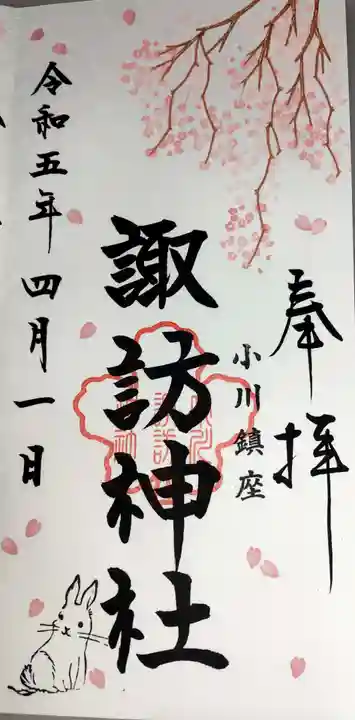 奉拝
小川鎮座
諏訪神社
令和五年四月一日